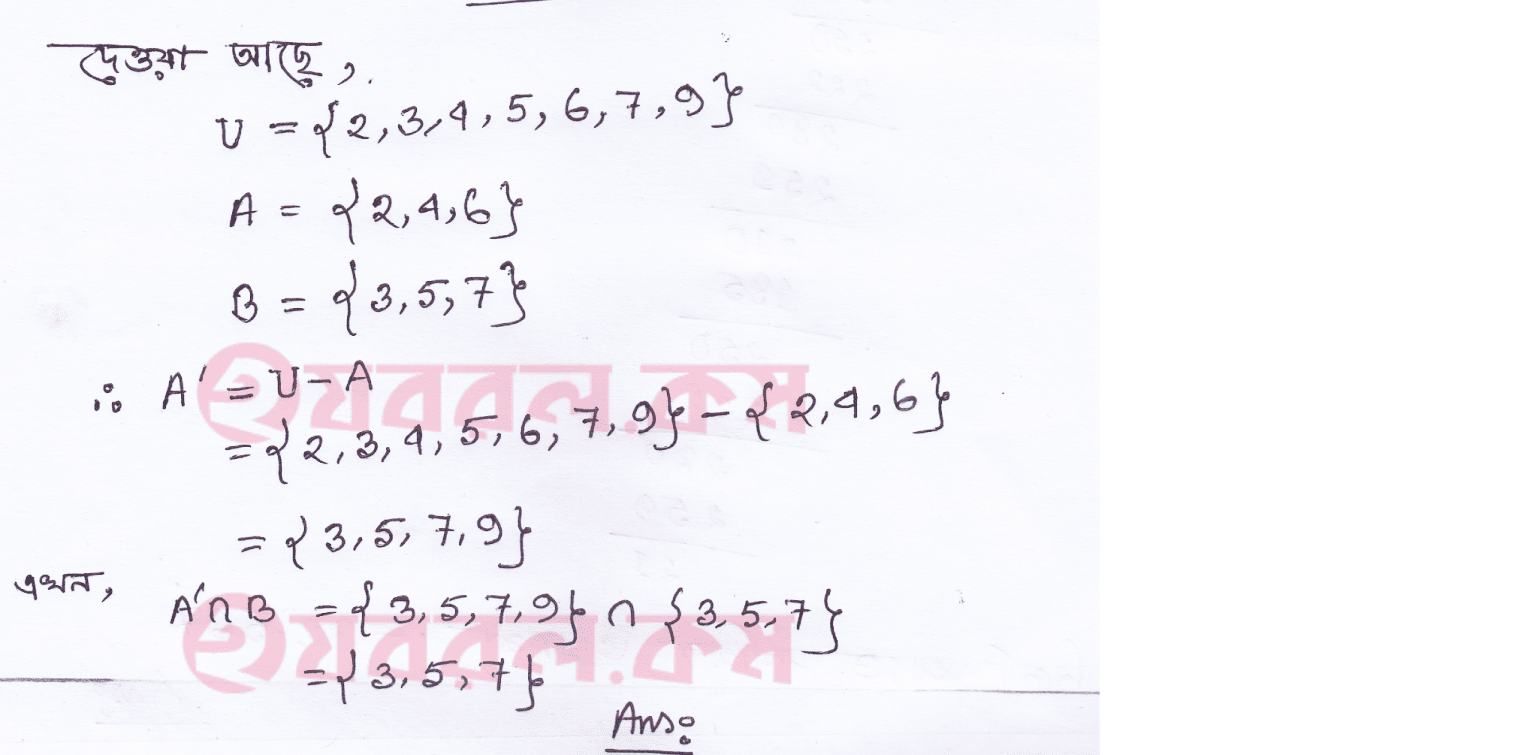 দেওয়া আছে,
U = {2, 3, 4, 5, 6, 7, 9}
A = {2, 4, 6}
B = {3, 5, 7}
∴ A′ = U − A
= {2, 3, 4, 5, 6, 7, 9} − {2, 4, 6}
= {3, 5, 7, 9}
এখন,
A′∩B = {3, 5, 7, 9} ∩ {3, 5, 7}
= {3, 5, 7}
Ans:
হযবরল.কম
হযবরল.কম